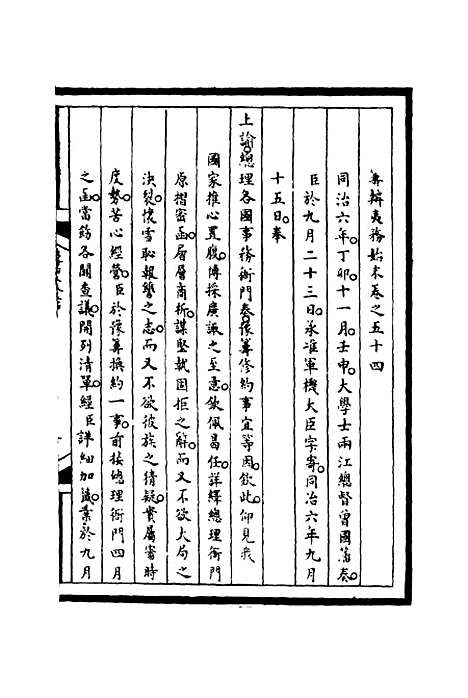 籌辦夷務始末卷之五十四
同治六年丁卯十一月壬申大學士兩江總督曾國藩奏
臣於九月二十三日承准軍機大臣字寄同治六年九月
十五日奉
上諭總理各國事務衙門奏豫籌修約事宜等因欽此仰見我
國家推心置腹博採廣諏之至意欽佩曷任詳繹總理衙門
原摺密函層層商析謀堅執固拒之辭而又不欲大局之
決裂懷雪恥報讐之志而又不欲彼族之猜疑實屬審時
度勢苦心經營臣於豫籌換約一事前接總理衙門四月
之函當飭各關查議開列清單經臣詳細加籤業於九月